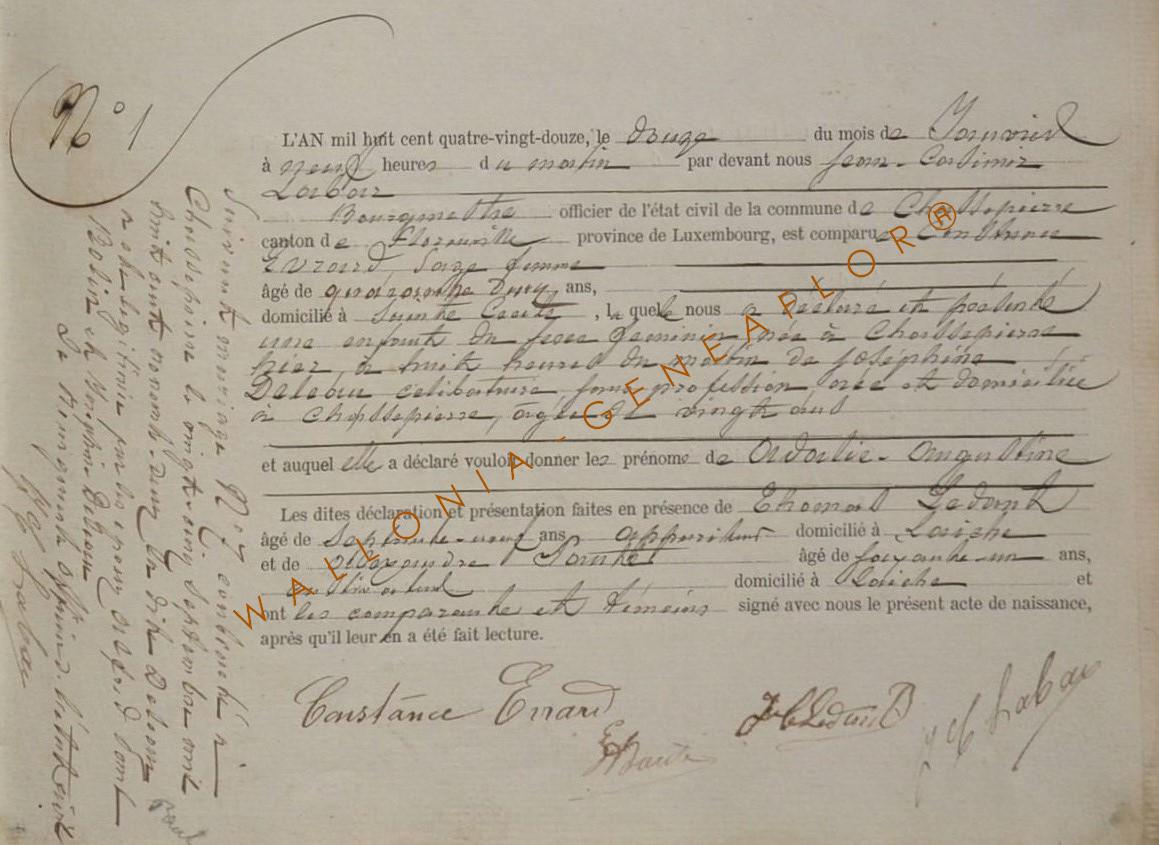 N° 1
L'AN mil huit cent quatre-vingt-douze, le douze du mois de Janvier
à neuf heures du matin par devant nous Jean-Casimir
Labar
Bourgmestre officier de l'état civil de la commune de Chassepierre
canton de Florenville province de Luxembourg, est comparue Constance
Evrard, Sage femme
âgé de quarante deux ans,
domicilié à Sainte Cécile, laquelle nous a déclaré et présenté
une enfant du sexe féminin née à Chassepierre
hier, à huit heures du matin de Joséphine
Deleau célibataire sans profession née et domiciliée
à Chassepierre, âgée de vingt ans
et auquel elle a déclaré vouloir donner les prénoms de Augustine
Les dites déclaration et présentation faites en présence de Thomas Ledent
âgé de septante-neuf ans appariteur domicilié à Laiche
et de Alexandre âgé de soixante-un ans,
cultivateur domicilié à Laiche et
ont les comparante et témoins signé avec nous le présent acte de naissance,
après qu'il leur en a été fait lecture.
Constance Evrard
Labar
Suivant mariage N° 7 contracté à
Chassepierre le vingt-cinq septembre mil
huit cent nonante-deux la dite Deleau
a été légitimée par les époux
Le Bourgmestre officier de l'état civil
Labar
WALLONIA - GENEAPLOR®